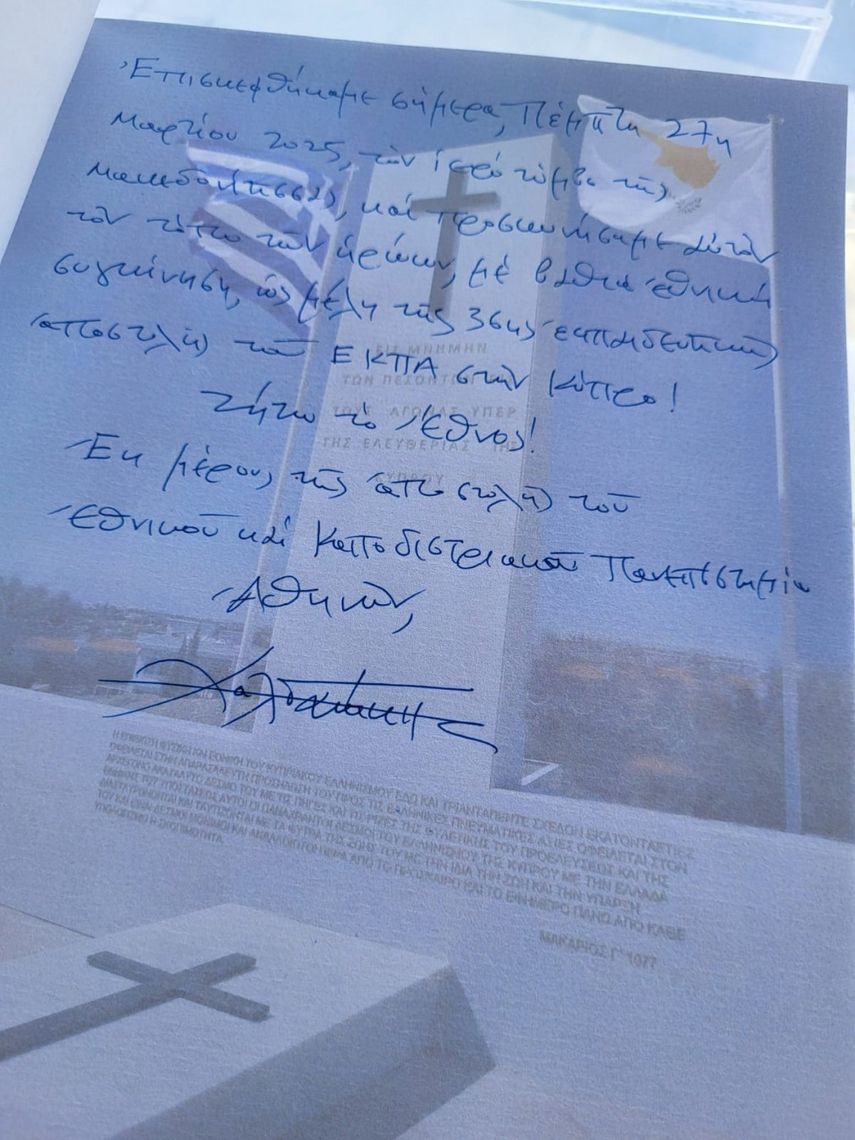 Ἐπισκεφθήκαμε σήμερα, Πέμπτη 27η
Μαρτίου 2025, τὸν ἱερό τύμβο τῆς
Μακεδονίτισσας, καί προσκυνήσαμε αὐτὸν
τὸν τόπο τῶν ἡρώων, μέ βαθιά ἐθνική
συγκίνηση, ὡς μέλη τῆς 36ης ἐκπαιδευτικῆς
ἀποστολῆς τοῦ ΕΚΠΑ στὴν Κύπρο!
Ζήτω τὸ Ἔθνος!
Ἐκ μέρους τῆς ἀποστολῆς τοῦ
Ἐθνικοῦ καί Καποδιστριακοῦ Πανεπιστημίου
Ἀθηνῶν,
ΕΙΣ ΜΝΗΜΗΝ
ΤΩΝ ΠΕΣΟΝΤΩΝ
ΤΟΥΣ ΑΓΩΝΑΣ ΥΠΕΡ
ΤΗΣ ΕΛΕΥΘΕΡΙΑΣ ΤΗΣ
ΚΥΠΡΟΥ
Η ΕΠΙΒΙΩΣΗ ΦΥΣΙΚΗ ΚΑΙ ΕΘΝΙΚΗ ΤΟΥ ΚΥΠΡΙΑΚΟΥ ΕΛΛΗΝΙΣΜΟΥ ΕΔΩ ΚΑΙ ΤΡΙΑΝΤΑΠΕΝΤΕ ΣΧΕΔΟΝ ΕΚΑΤΟΝΤΑΕΤΙΕΣ
ΟΦΕΙΛΕΤΑΙ ΣΤΗΝ ΑΠΑΡΑΣΑΛΕΥΤΗ ΠΡΟΣΗΛΩΣΗ ΤΟΥ ΠΡΟΣ ΤΙΣ ΕΛΛΗΝΙΚΕΣ ΠΝΕΥΜΑΤΙΚΕΣ ΑΞΙΕΣ ΟΦΕΙΛΕΤΑΙ ΣΤΟΝ
ΔΕΣΜΟ ΤΟΥ ΜΕ ΤΙΣ ΠΗΓΕΣ ΚΑΙ ΤΙΣ ΡΙΖΕΣ ΤΗΣ ΦΥΛΕΤΙΚΗΣ ΤΟΥ ΠΡΟΕΛΕΥΣΕΩΣ ΚΑΙ ΤΗΣ
ΕΘΝΙΚΗΣ ΤΟΥ ΥΠΟΣΤΑΣΕΩΣ ΑΥΤΟΙ ΟΙ ΠΑΝΑΧΡΑΝΤΟΙ ΔΕΣΜΟΙ ΤΟΥ ΕΛΛΗΝΙΣΜΟΥ ΤΗΣ ΚΥΠΡΟΥ ΜΕ ΤΗΝ ΕΛΛΑΔΑ
ΚΑΙ ΤΑΥΤΙΖΟΝΤΑΙ ΜΕ ΤΑ ΦΥΤΡΑ ΤΗΣ ΖΩΗΣ ΤΟΥ ΜΕ ΤΗΝ ΙΔΙΑ ΤΗΝ ΖΩΗ ΚΑΙ ΤΗΝ ΥΠΑΡΞΗ
ΤΟΥ ΚΑΙ ΕΙΝΑΙ ΔΕΣΜΟΙ ΜΟΝΙΜΟΙ ΚΑΙ ΑΝΑΛΛΟΙΩΤΟΙ ΠΕΡΑ ΑΠΟ ΤΟ ΠΡΟΣΚΑΙΡΟ ΚΑΙ ΤΟ ΕΦΗΜΕΡΟ ΠΑΝΩ ΑΠΟ ΚΑΘΕ
Η ΣΚΟΠΙΜΟΤΗΤΑ
ΜΑΚΑΡΙΟΣ Γ' 1977